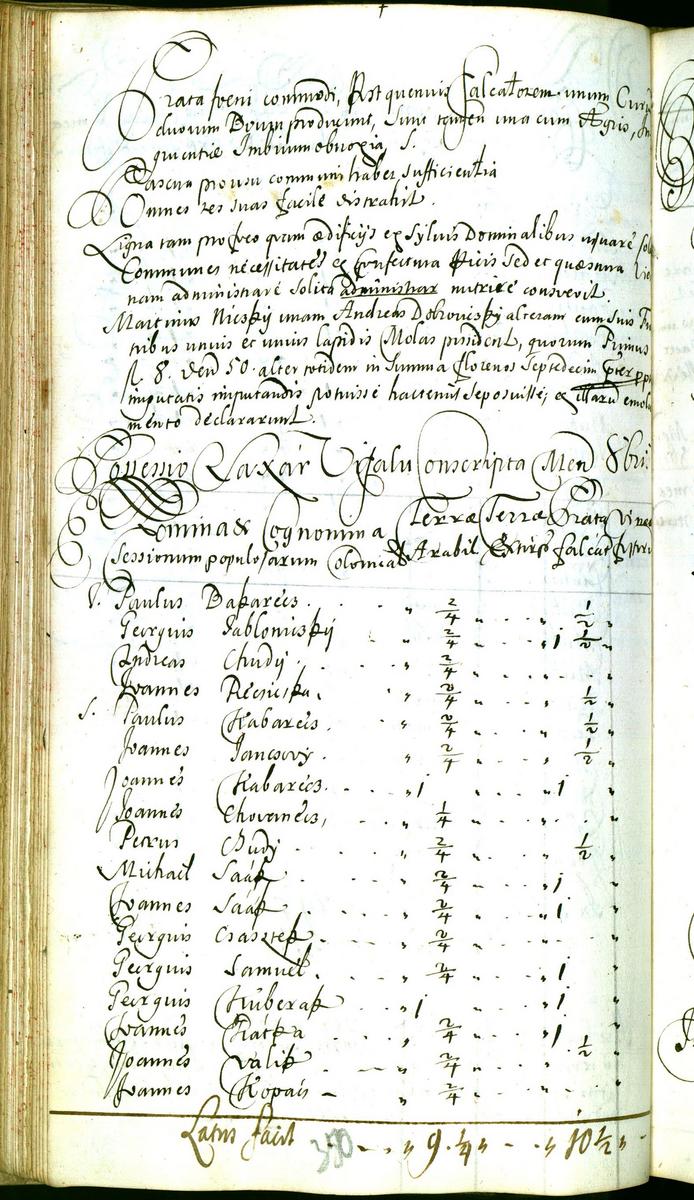 Prata foeni commodi, Post quemvis Falcatorem unum Currum
duorum Boum producunt, sunt tamen una cum Agris,
quentiae Imbrium obnoxia, s.
Pascua pro usu communi habet sufficientia
Omnes res suas facile distrahit.
Ligna tam pro foco quam aedificijs ex Sylvis Dominalibus usuare
Communes necessitates ex Confectura Picis Sed et quaesura
nam administrare solita administrar nutrire consvevit.
Martinus Nicsky unam Andreas Dobrovicsky alteram cum suis
tribus unius et unius lapidis Molas possident, quorum Primus
fl. 8. den 50. alter totidem in Summa florenos Septedecim
imputatis imputandis potuisse hactenus seposuisse, ex illarum
mento declararunt.
Possessio Lazar Ujfalu Conscripta Men 8bri.
Nomina & Cognomina Terrae Terrae Prata
Sessionum populosarum Colonicae Arabil Extirp falcat
V. Paulus Bakarecs. „ 2/4 „ „ 1/2 „
Georgius Jablonicsky „ 2/4 „ „ 1 1/2 „
Andreas Chudy. „ 2/4 „
Joannes Recsicska. „ 2/4 „ „ 1/2 „
S. Paulus Habarecs. „ 2/4 „ „ 1/2 „
Joannes Jancsovy. „ 2/4 „ „ 1/2 „
Joannes Habarecs. „ 1 „ 1 „
Joannes Chovanecs, „ 1/4 „
Petrus Chudy „ 2/4 „ „ 1/2 „
Michael Saak „ 2/4 „ „ 1 „
Joannes Saak „ 2/4 „ „ 1 „
Georgius Csasztek „ 2/4 „
Georgius Samuel. „ 2/4 „ „ 1 „
Georgius Kuberak „ 1 „ 1 „
Joannes Katka „ 2/4 „ „ 1 „
Joannes Valik „ 2/4 „ 1/2 „
Joannes Kopais „ 2/4 „
Latus facit 380 „ 9 1/4 „ „ 10 1/2 „